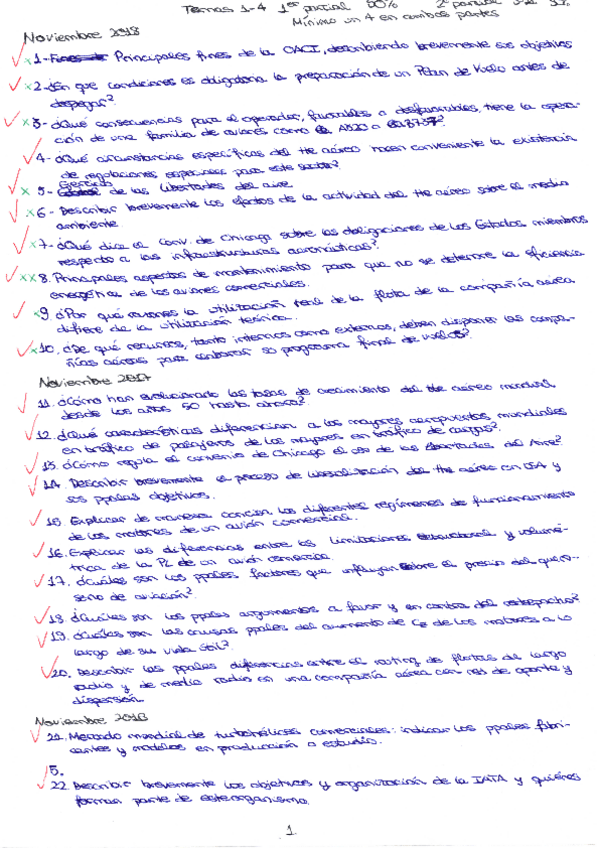 Temas 1-4 1er parcial 50% 2º parcial
Mínimo un 4 en ambas partes
Noviembre 2018
1- Principales fines de la OACI, describiendo brevemente sus objetivos
2- ¿En que condiciones es obligatoria la preparación de un Plan de Vuelo antes de
despegar?
3- ¿Qué consecuencias para el operador, favorables o desfavorables, tiene la opera-
ción de una familia de aviones como A320 o B737?
4- ¿Qué circunstancias específicas del tte aéreo hacen conveniente la existencia
de regulaciones especiales para este sector?
5- Ejercicio de las libertades del aire.
6- Describir brevemente los efectos de la actividad del tte aéreo sobre el medio
ambiente.
7- ¿Qué dice el Conv. de Chicago sobre las obligaciones de los Estados miembros
respecto a las infraestructuras aeronáuticas?
8. Principales aspectos de mantenimiento para que no se deteriore la eficiencia
energética de los aviones comerciales.
9. ¿Por qué razones la utilización real de la flota de la compañía aérea
difiere de la utilización teórica.
10. ¿De qué recursos, tanto internos como externos, deben disponer las compa-
ñías aéreas para elaborar su programa final de vuelos?
Noviembre 2017
11. ¿Cómo han evolucionado las tasas de crecimiento del tte aéreo mundial
desde los años 50 hasta ahora?
12. ¿Qué características diferencian a los mayores aeropuertos mundiales
en tráfico de pasajeros de los mayores en tráfico de cargas?
13. ¿Cómo regula el convenio de Chicago el uso de las libertades del Aire?
14. Describir brevemente el proceso de liberalización del tte aéreo en USA y
sus ppales objetivos.
15. Explicar de manera concisa los diferentes regímenes de funcionamiento
de los motores de un avión comercial.
16. Explicar las diferencias entre las limitaciones estructural y volumé-
trica de la PL de un avión comercial.
17. ¿Cuáles son los ppales factores que influyen sobre el precio del quero-
seno de aviación?
18. ¿Cuáles son los ppales argumentos a favor y en contra del
19. ¿Cuáles son las causas ppales del aumento de de los motores a lo
largo de su vida útil?
20. Describir las ppales diferencias entre el routing de flotas de largo
radio y de medio radio en una compañía aérea con red de aporte y
dispersión.
Noviembre 2016
21. Mercado mundial de turbohélices comerciales: indicar los ppales fabri-
cantes y modelos en producción o estudio.
5.
22. Describir brevemente los objetivos y organización de la IATA y quiénes
forman parte de este organismo.
1.